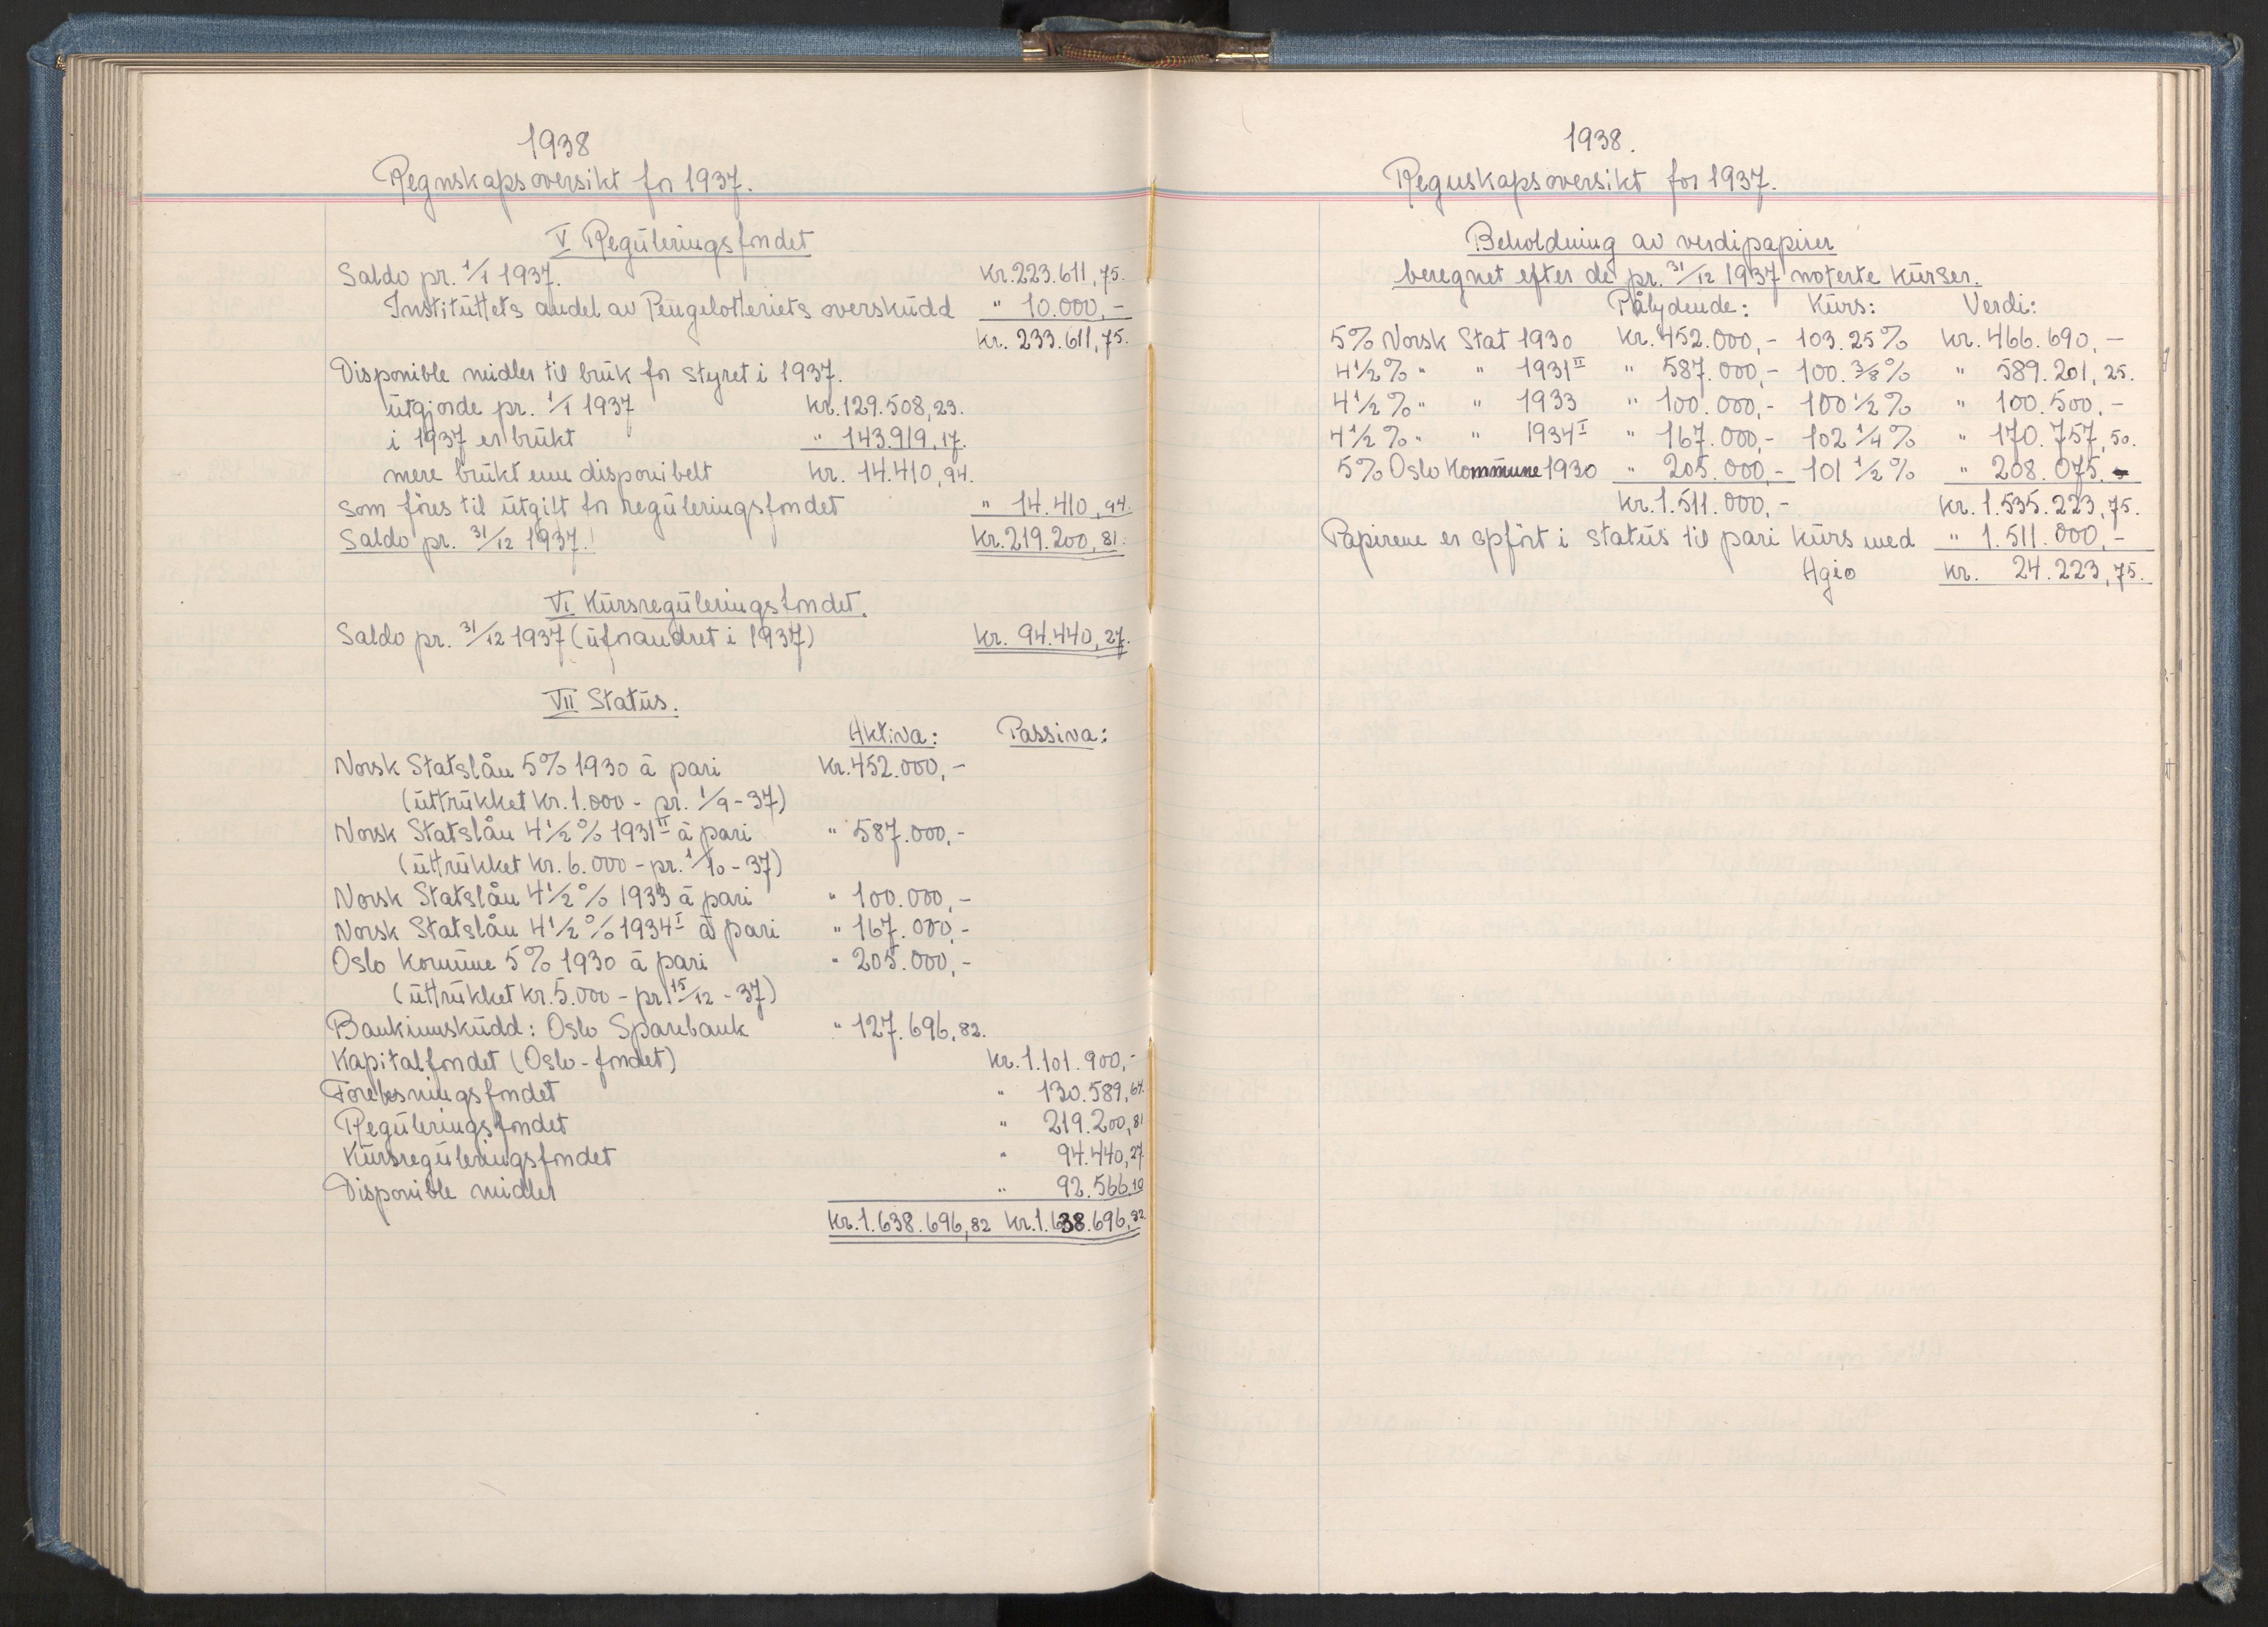 1938
Regnskapsoversikt for 1937.
V Reguleringsfondet
Saldo pr. 1/1 1937. Kr. 223.611,75.
Instituttets andel av Pengelotteriets overskudd " 10.000,-
Kr. 233.611,75.
Disponible midler til bruk for styret i 1937.
utgjorde pr. 1/1 1937 Kr. 129.508,23.
i 1937 er brukt " 143.919,17.
mere brukt enn disponibelt Kr. 14.410,94.
som føres til utgift for reguleringsfondet " 14.410,94.
Saldo pr. 31/12 1937. Kr. 219.200,81.
VI Kursreguleringsfondet.
Saldo pr. 31/12 1937 (uforandret i 1937) Kr. 94.440,27.
VII Status.
Aktiva: Passiva:
Norsk Statslån 5% 1930 à pari Kr. 452.000,-
(uttrukket kr. 1.000 - pr. 1/9 - 37)
Norsk Statslån 4 1/2 % 1931 II à pari " 587.000,-
(uttrukket kr. 6.000 - pr. 1/10 - 37)
Norsk Statslån 4 1/2 % 1933 à pari " 100.000,-
Norsk Statslån 4 1/2 % 1934 I à pari " 167.000,-
Oslo Komune 5% 1930 à pari " 205.000,-
(uttrukket kr. 5.000 - pr. 15/12 - 37)
Bankinnskudd: Oslo Sparebank " 127.696,82.
Kapitalfondet (Oslo-fondet) Kr. 1.101.900,-
Forelesningsfondet " 130.589,64.
Reguleringsfondet " 219.200,81
Kursreguleringsfondet " 94.440,27
Disponible midler " 92.566,10
Kr. 1.638.696,82 Kr. 1.638.696,82.
1938.
Regnskapsoversikt for 1937.
Beholdning av verdipapirer
beregnet efter de pr. 31/12 1937 noterte kurser.
Pålydende: Kurs: Verdi:
5% Norsk Stat 1930 Kr. 452.000,- 103.25% Kr. 466.690,-
4 1/2 % " " 1931 II " 587.000,- 100.3/8% " 589.201,25.
4 1/2 % " " 1933 " 100.000,- 100 1/2 % " 100.500,-
4 1/2 % " " 1934 I " 167.000,- 102 1/4 % " 170.757,50.
5% Oslo Kommune 1930 " 205.000,- 101 1/2 % " 208.075,-
Kr. 1.511.000,- Kr. 1.535.223,75.
Papirene er opført i status til pari kurs med " 1.511.000,-
Agio Kr. 24.223,75.